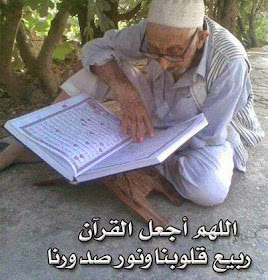 اللهم أجعل القرآن
ربيع قلوبنا ونور صدورنا